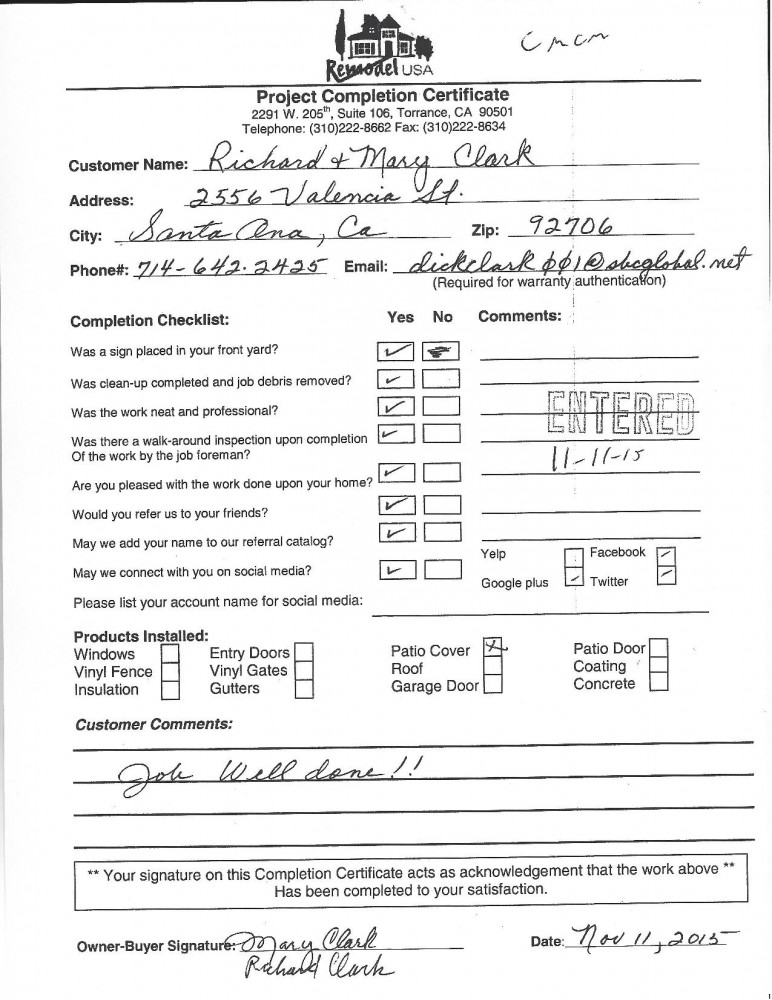 Remodel USA
Project Completion Certificate
2291 W. 205th, Suite 106, Torrance, CA 90501
Telephone: (310)222-8662 Fax: (310)222-8634
Customer Name: Richard + Mary Clark
Address: 2556 Valencia St.
City: Santa Ana, Ca Zip: 92706
Phone#: 714-642-2425 Email: dickclark001@sbcglobal.net
(Required for warranty authentication)
Completion Checklist: Yes No Comments:
Was a sign placed in your front yard?
Was clean-up completed and job debris removed?
Was the work neat and professional?
ENTERED
Was there a walk-around inspection upon completion
Of the work by the job foreman?
11-11-15
Are you pleased with the work done upon your home?
Would you refer us to your friends?
May we add your name to our referral catalog?
Yelp Facebook
May we connect with you on social media?
Google plus Twitter
Please list your account name for social media:
Products Installed:
Windows Entry Doors Patio Cover Patio Door
Vinyl Fence Vinyl Gates Roof Coating
Insulation Gutters Garage Door Concrete
Customer Comments:
Job Well done!!
** Your signature on this Completion Certificate acts as acknowledgement that the work above **
Has been completed to your satisfaction.
Owner-Buyer Signature: Mary Clark Date: Nov 11, 2015
Richard Clark